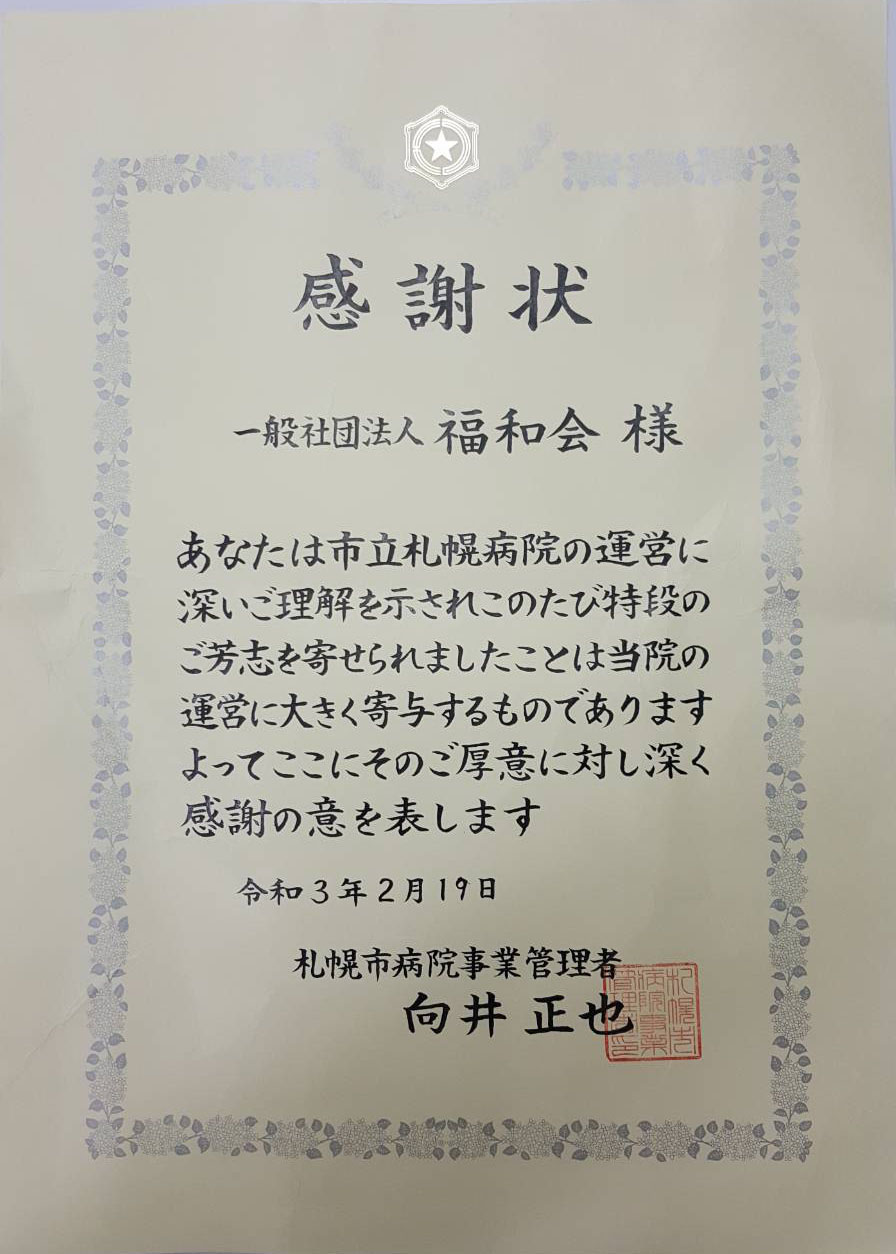 感謝状
一般社団法人 福和会 様
あなたは市立札幌病院の運営に
深いご理解を示されこのたび特段の
ご芳志を寄せられましたことは当院の
運営に大きく寄与するものであります
よってここにそのご厚意に対し深く
感謝の意を表します
令和3年2月19日
札幌市病院事業管理者
向井 正也